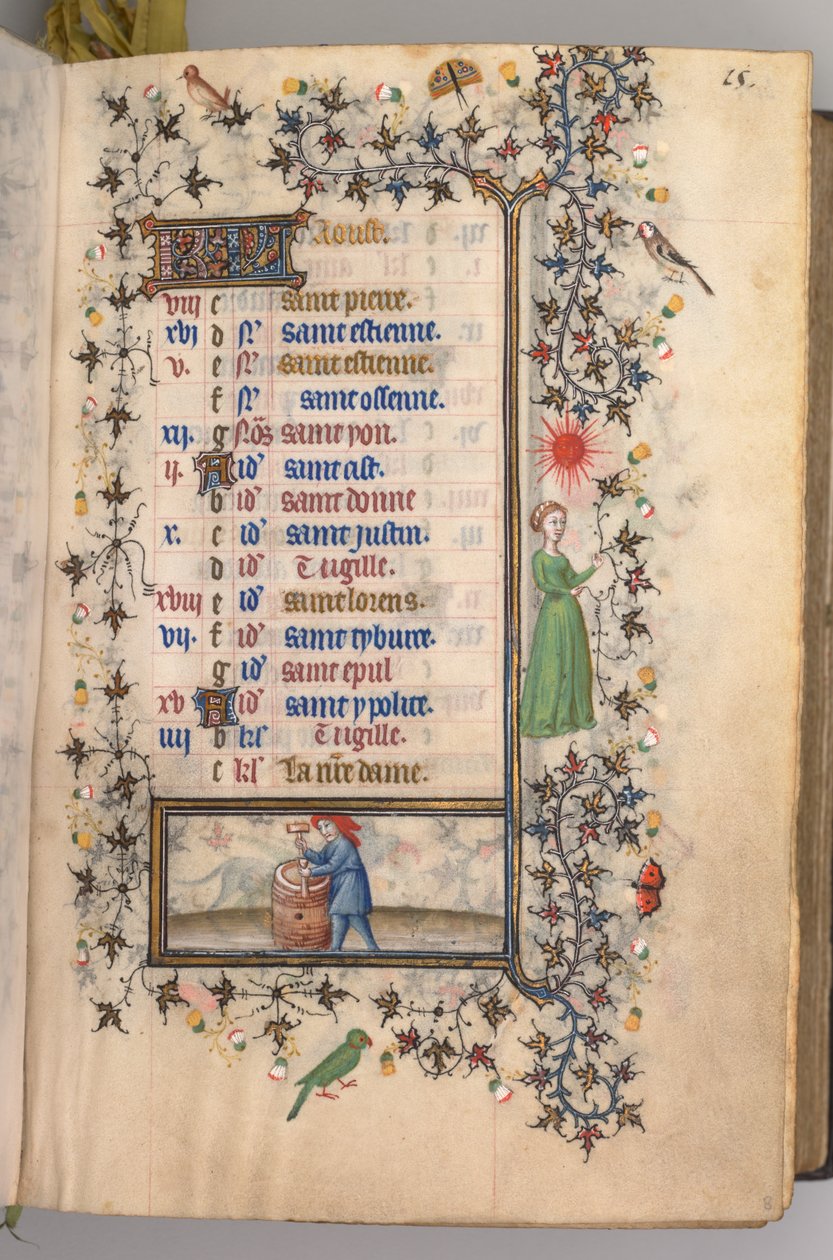 15.
KL Aoust.
viii c saint pierre.
xvi d N' saint estienne.
v. e N' saint estienne.
f N' saint ossenne.
xii. g Nos saint yon.
ii. A id' saint cist.
b id' saint donne
x. c id' saint justin.
d id' Vigille.
xviii e id' saint lorens.
vii. f id' saint tyburce.
g id' saint epul
xv A id' saint ypolite.
iiii b kl' Vigille.
c kl' La nr̄e dame.
8